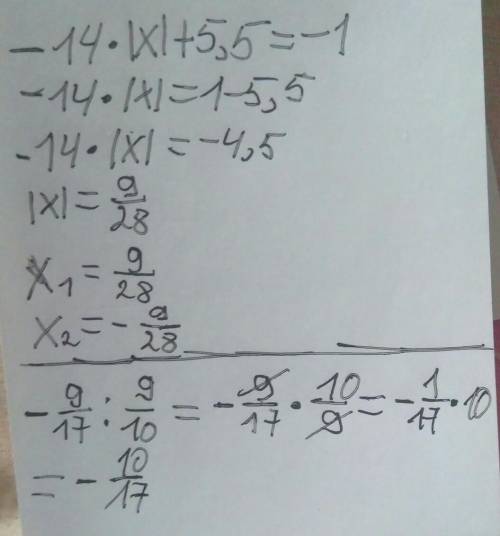 -14·|x|+5,5=-1
-14·|x|=1-5,5
-14·|x|=-4,5
|x|=9/28
x₁=9/28
x₂=-9/28
-9/17:9/10=-9/17·10/9=-1/17·10
=-10/17